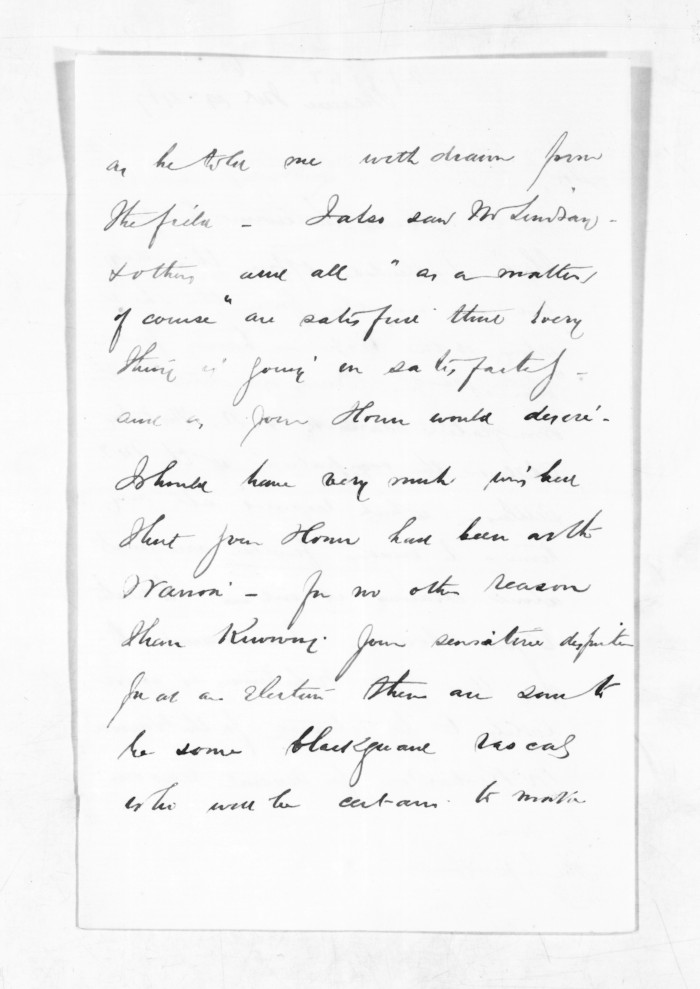 as he told me withdrawn from
the field - I also saw Mr Lindsay -
& others and all " as a matter
of course " are satisfied that Every
thing is going on satisfactory -
and as your Honor would desire -
I should have very much wished
that your Honor had been at the
Wairoa - for no other reason
than Knowing your sensitive
for at an Election there are sure to
be some blackguard rascals
who will be certain to make